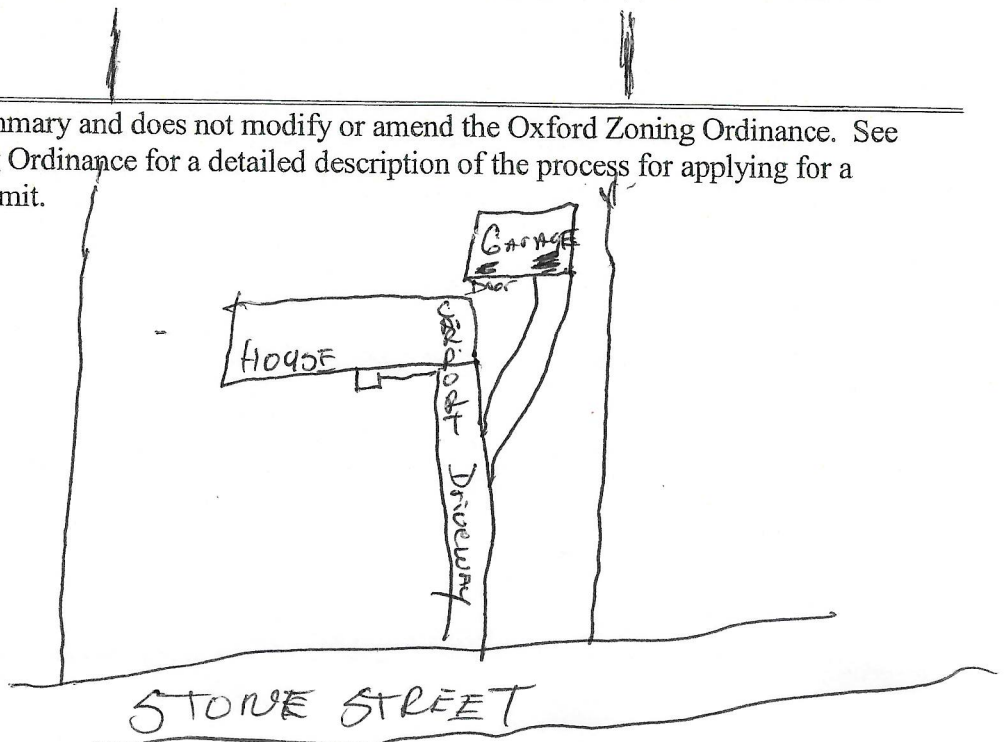 mmary and does not modify or amend the Oxford Zoning Ordinance. See
Ordinance for a detailed description of the process for applying for a
mit.
GArAGE
Door
CARPORT
HOUSE
Driveway
STONE STREET